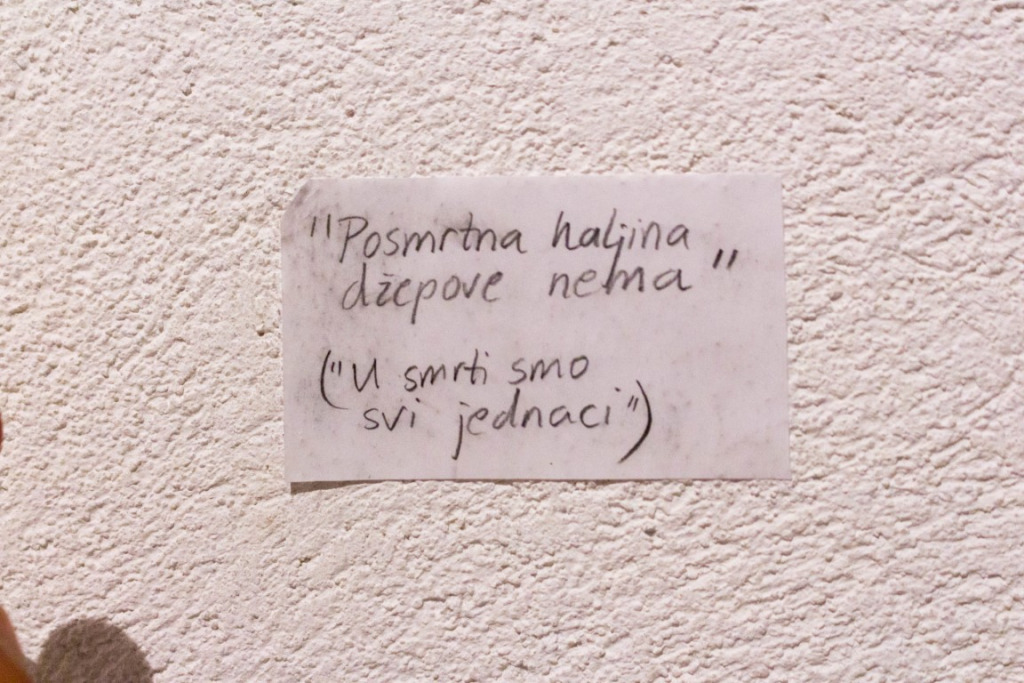 "Posmrtna haljina
džepove nema"
("U smrti smo
svi jednaci")